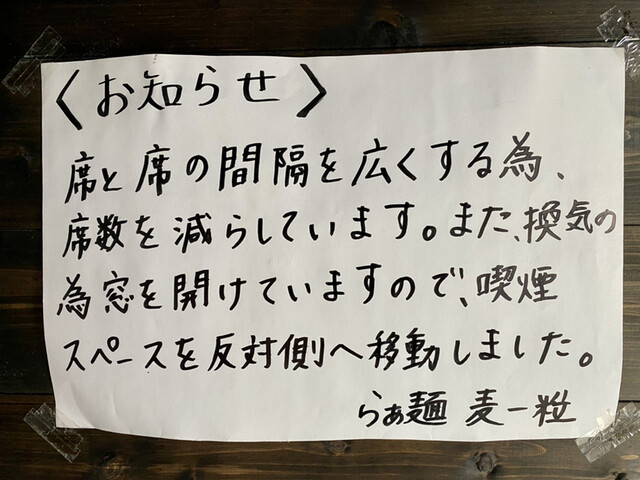 〈お知らせ〉
席と席の間隔を広くする為、
席数を減らしています。また、換気の
為窓を開けていますので、喫煙
スペースを反対側へ移動しました。
らぁ麺 麦一粒